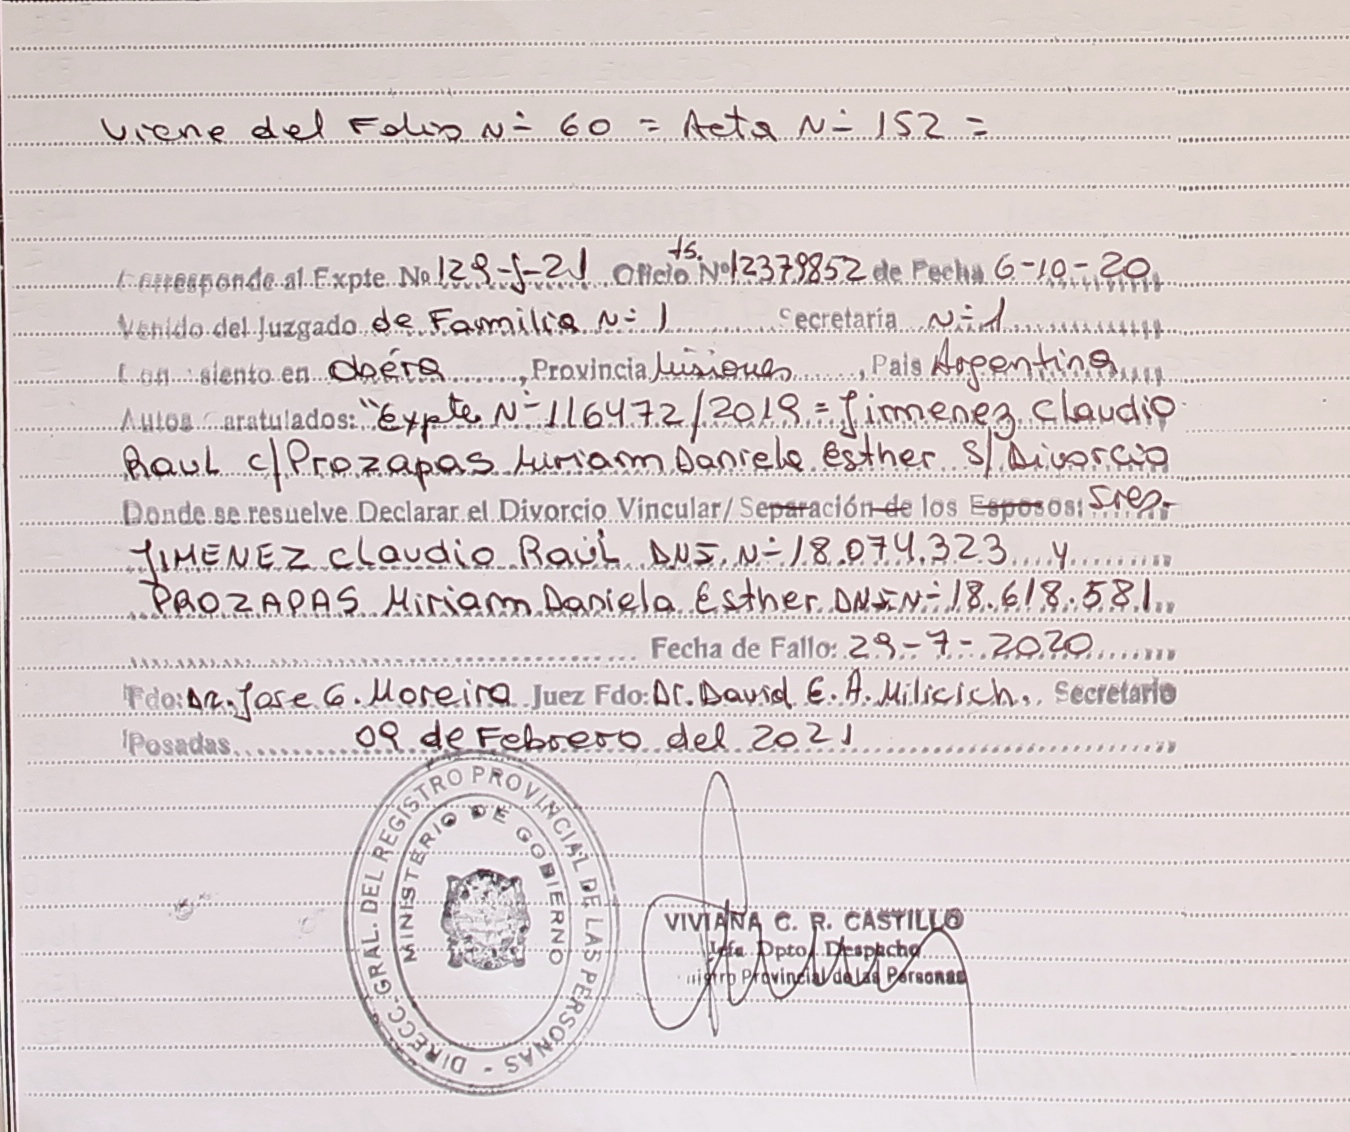 Viene del Folio Nº 60 = Acta Nº 152 =
Corresponde al Expte. Nº 129-J-21 Oficio ts. Nº 12379852 de Fecha 6-10-20
Venido del Juzgado de Familia Nº 1 Secretaría Nº 1
Con asiento en Oberá, Provincia Misiones, País Argentina
Autos Caratulados: "Expte Nº 116472/2019 = Jimenez Claudio
Raul c/ Prozapas Miriam Daniela Esther S/ Divorcio
Donde se resuelve Declarar el Divorcio Vincular/ Separación de los Esposos: Sres.
JIMENEZ Claudio Raúl DNI. Nº 18.074.323 y
PROZAPAS Miriam Daniela Esther DNI Nº 18.618.581
Fecha de Fallo: 29-7-2020
Fdo: Dr. Jose G. Moreira Juez Fdo: Dr. David E. A. Milicich. Secretario
Posadas 09 de Febrero del 2021
DIRECC. GRAL. DEL REGISTRO PROVINCIAL DE LAS PERSONAS -
MINISTERIO DE GOBIERNO
VIVIANA C. R. CASTILLO
Jefa Dpto. Despacho
Registro Provincial de las Personas